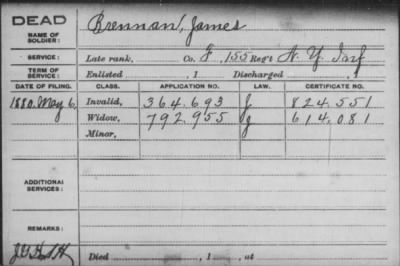 DEAD
NAME OF SOLDIER: Brennan, James
SERVICE: Late rank, Co. F, 155 Reg't N. Y. Inf
TERM OF SERVICE: Enlisted , 1 Discharged , 1
DATE OF FILING. CLASS. APPLICATION NO. LAW. CERTIFICATE NO.
1880. May 6, Invalid, 364.693 J 824.551
Widow, 792.955 J 614.081
Minor,
ADDITIONAL SERVICES:
REMARKS:
Died , 1 , at